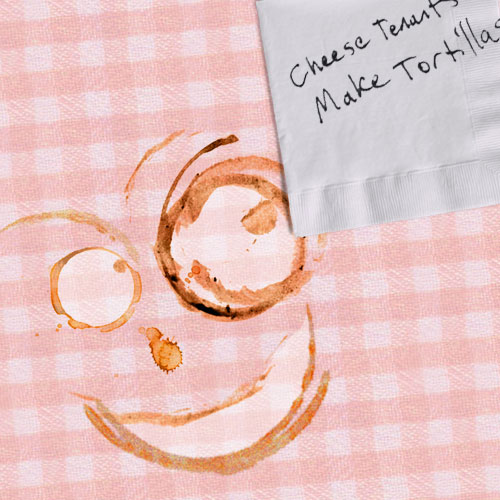 Cheese Tenants
Make Tortillas